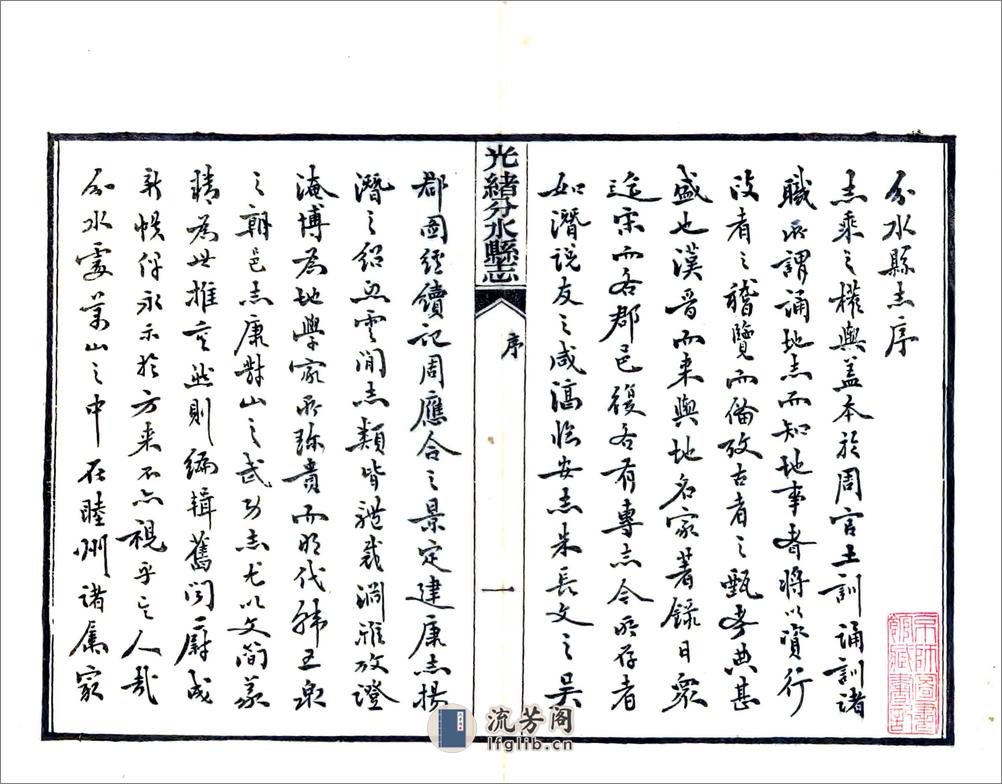 分水縣志序
志乘之權輿蓋本於周官土訓誦訓諸
職所謂誦地志而知地事者將以資行
政者之稽覽而備攷古者之甄考典甚
盛也漢晋而来輿地名家著錄日衆
迄宋而各郡邑復各有專志今所存者
如潛説友之咸淳臨安志朱長文之吴
光緒分水縣志
序
一
郡圖經續記周應合之景定建康志楊
潛之紹熙雲間志類皆體裁淵雅攷證
淹博為地學家所珍貴而明代韩五泉
之朝邑志康對山之武功志尤以文簡義
精為世推㝎然則編輯舊聞蔚成
新帙俾永示於方来不亦視乎其人哉
分水處萬山之中在睦州諸属寂
京師圖書
館藏書記
流芳阁
lfglib.cn